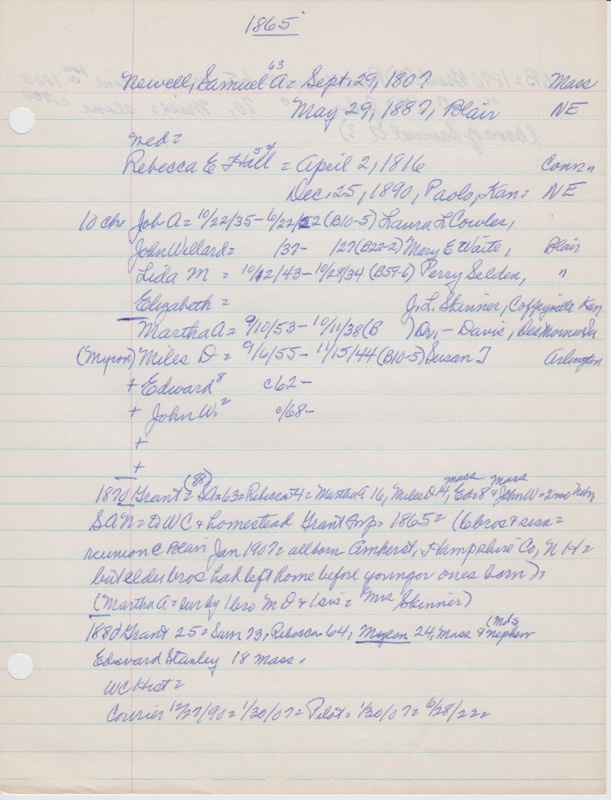 1865
Newell, Samuel A = Sept. 29, 1807 Mass
63
May 29, 1887, Blair NE
med =
Rebecca E Hall = April 2, 1816 Conn
54
Dec. 25, 1890, Paola, Kan = NE
10 chr Job A = 10/22/35 - 6/22/22 (B10-5) Laura L Cowles,
John Willard = /37 - /27 (B22-2) Mary E Waite, Blair
Lida M = 10/12/43 - 10/29/34 (B59-6) Perry Selden, "
Elizabeth = J. L. Skinner, Coffeyville Kan
Martha A = 9/10/53 - 10/11/38 (B ) Dr. - Davis, Des Moines
(Myron) Miles D = 9/6/55 - 11/15/44 (B10-5) Susan J Arlington
+ Edward 8 c62 -
+ John W. 2 c/68 -
+
+
1870 Grant = (88) SA = 63 = Rebecca 54 = Martha A 16, Miles D 14, Ed = 8 mass & John W = 2 mass
SAN = to WC & homestead Grant Twp. 1865 = (6 bros & siss =
reunion @ Blair Jan 1907 = all born Amherst, Hampshire Co, N H =
but elder bros had left home before younger ones born) =
(Martha A = sur by 1 bro M D & 1 sis = Mrs Skinner)
1880 Grant 25 = Sam 73, Rebecca 64, Myron 24, Mass & nephew
Edward Stanley 18 Mass.
WC Hist =
Courier 12/27/90 = 1/30/07 = Pilot = 1/30/07 = 6/28/22 =